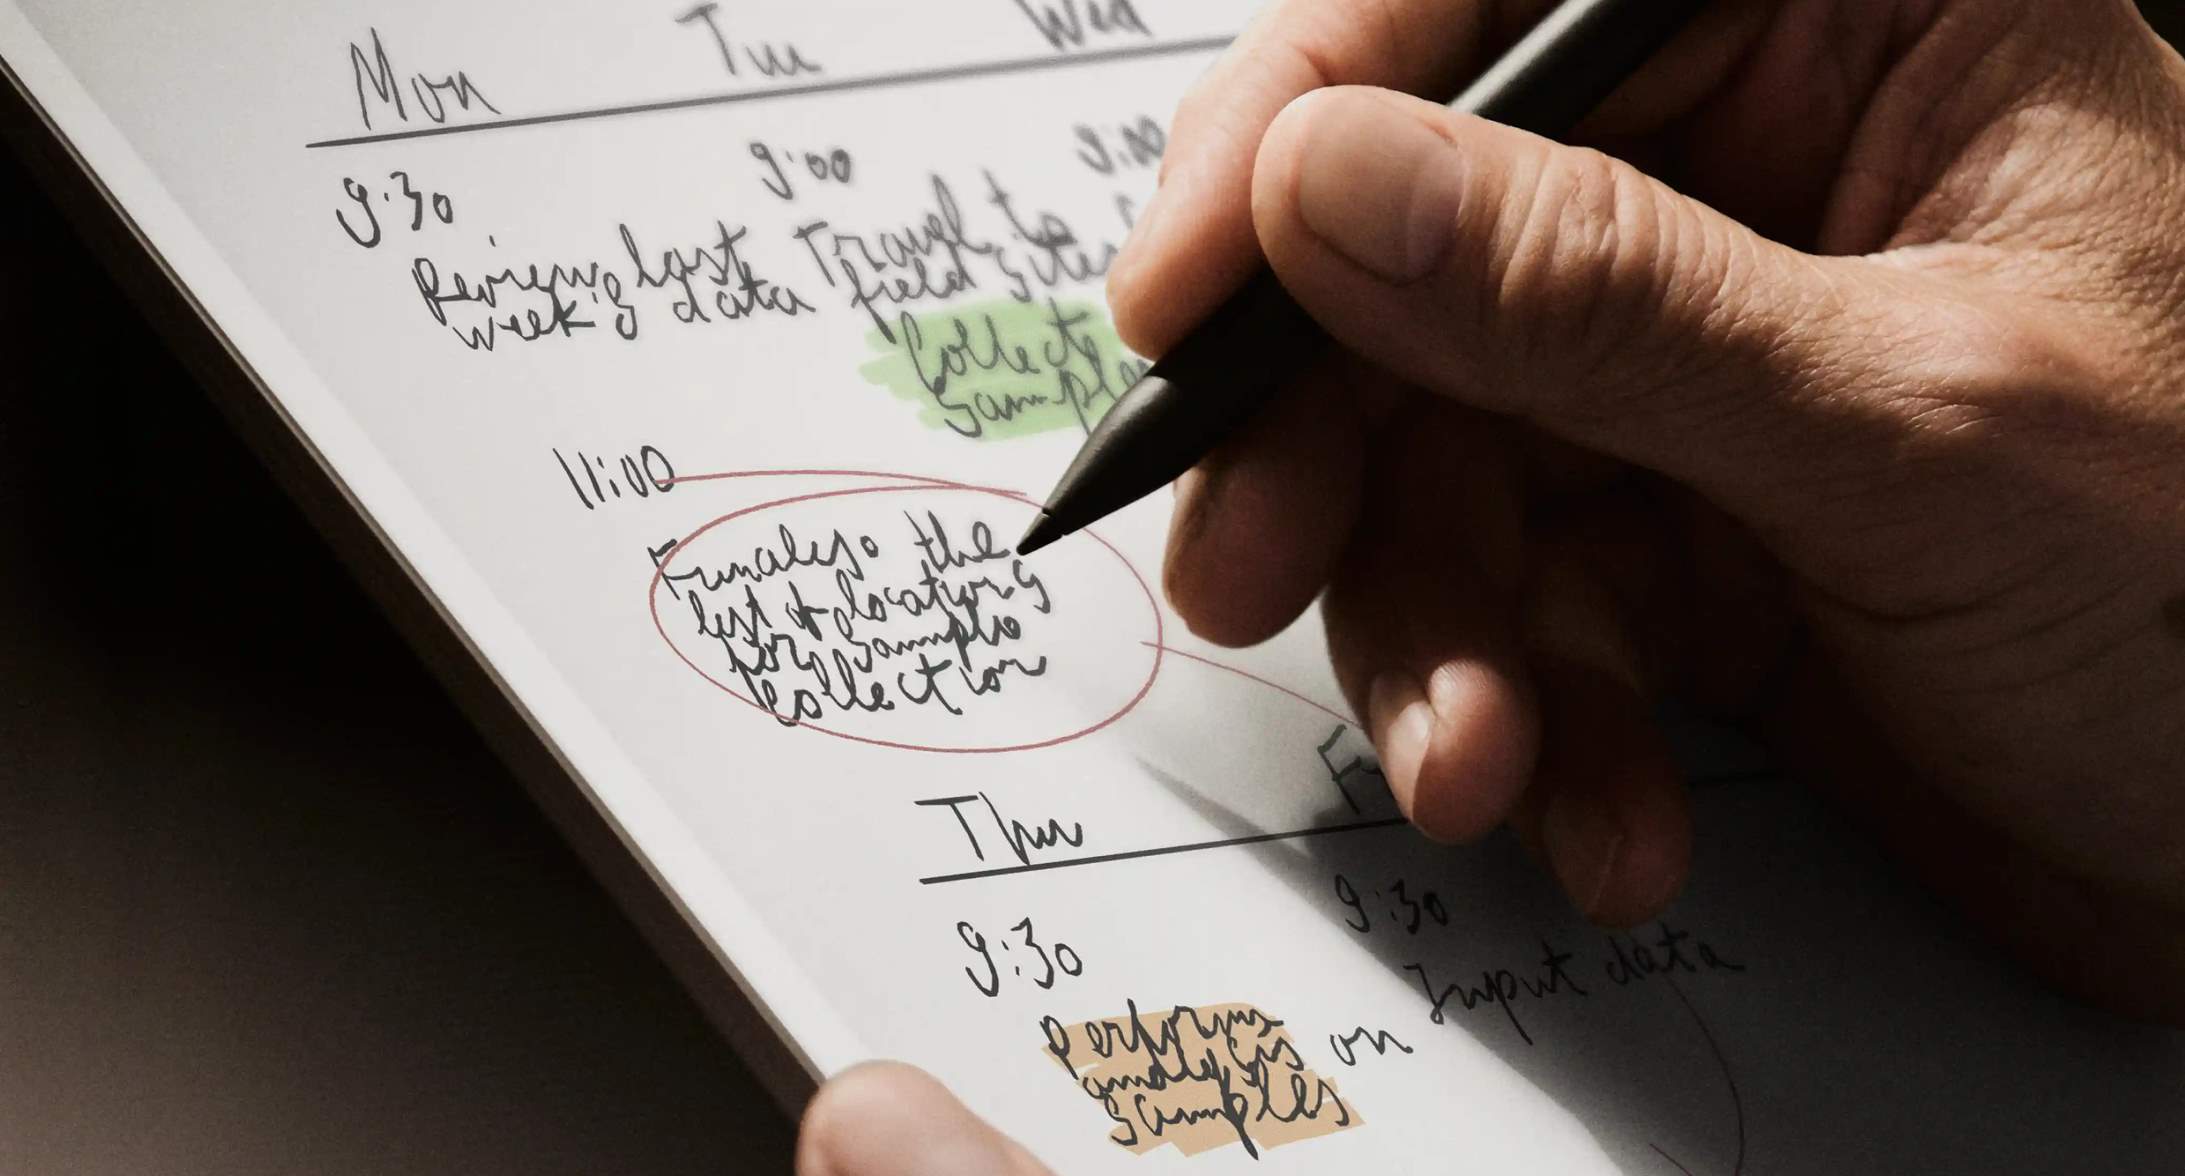 Mon Tu Wed
9:30
Review last
week's data
11:00
Finalise the
list of locations
for sample
collection
9:00
Travel to
field sites
Collect
samples
9:00
Thu
9:30
Perform
analysis on
samples
9:30
Input data